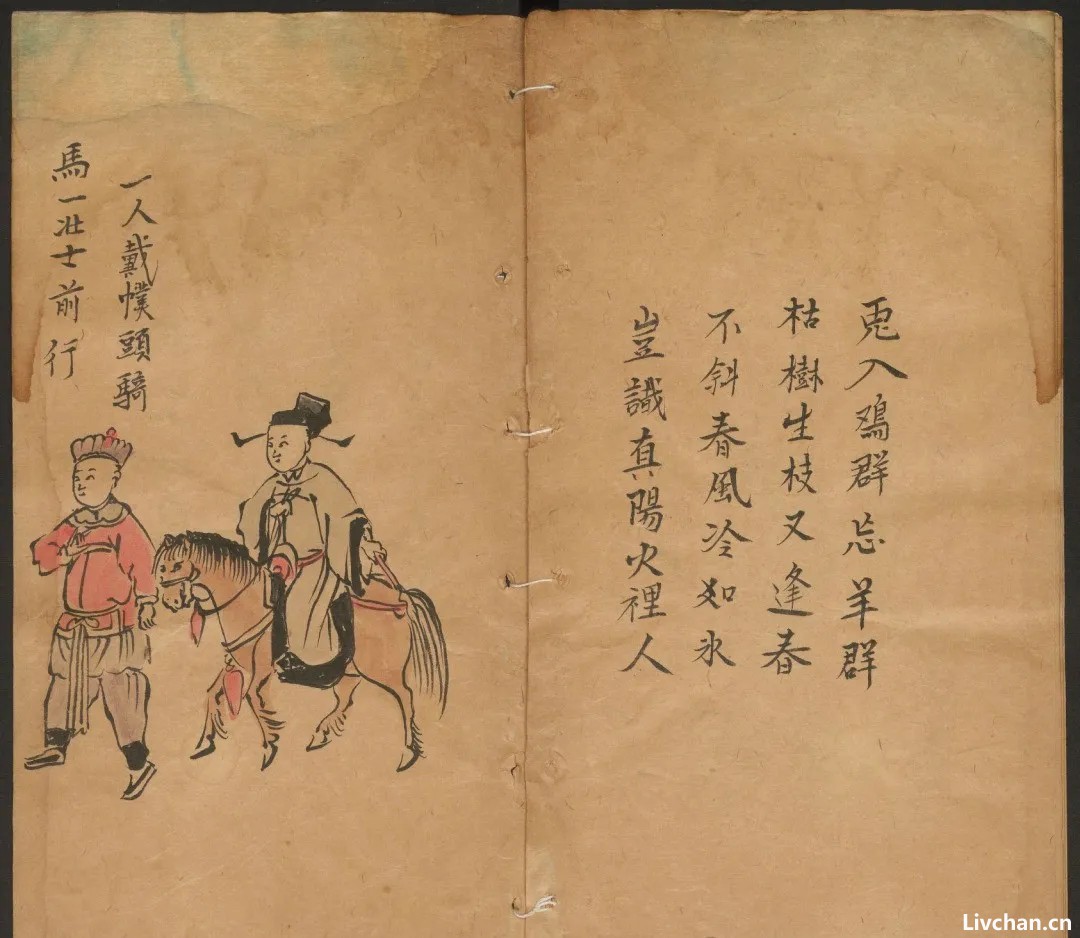 兎入鴉群忘羊群
枯樹生枝又逢春
不斜春風冷如氷
豈識真陽火裡人
一人戴幞頭騎
馬一壮士前行
Livchan.cn